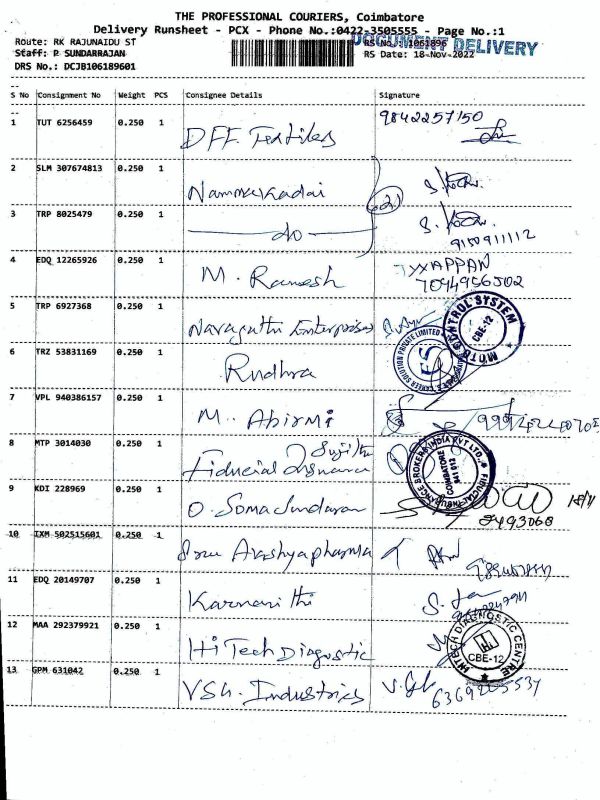 THE PROFESSIONAL COURIERS, Coimbatore
Delivery Runsheet - PCX - Phone No.:0422-3505555 - Page No.:1
Route: RK RAJUNAIDU ST
RS No.: 1061896
DOCUMENT DELIVERY
Staff: P SUNDARRAJAN
RS Date: 18-Nov-2022
DRS No.: DCJB106189601
S No Consignment No Weight PCS Consignee Details Signature
1 TUT 6256459 0.250 1 DFF. Textiles 9842257150
2 SLM 307674813 0.250 1 Nammakadai
3 TRP 8025479 0.250 1 do 9150911112
4 EDQ 12265926 0.250 1 M. Ramesh IYYAPPAN
7094956502
5 TRP 6927368 0.250 1 Enterprises
MOTO CONTROL SYSTEM
CBE-12
6 TRZ 53831169 0.250 1 Rudhra
7 VPL 940386157 0.250 1 M. Abirmi
8 MTP 3014030 0.250 1 Fiducial
COIMBATORE
641 012
9 KDI 228969 0.250 1 O. Somasundaran
10 IXM 502515601 0.250 1
11 EDQ 20149707 0.250 1
12 MAA 292379921 0.250 1 HiTech Diagnostic
HITECH DIAGNOSTIC CENTRE
CBE-12
13 GPM 631042 0.250 1 VSh. Industries